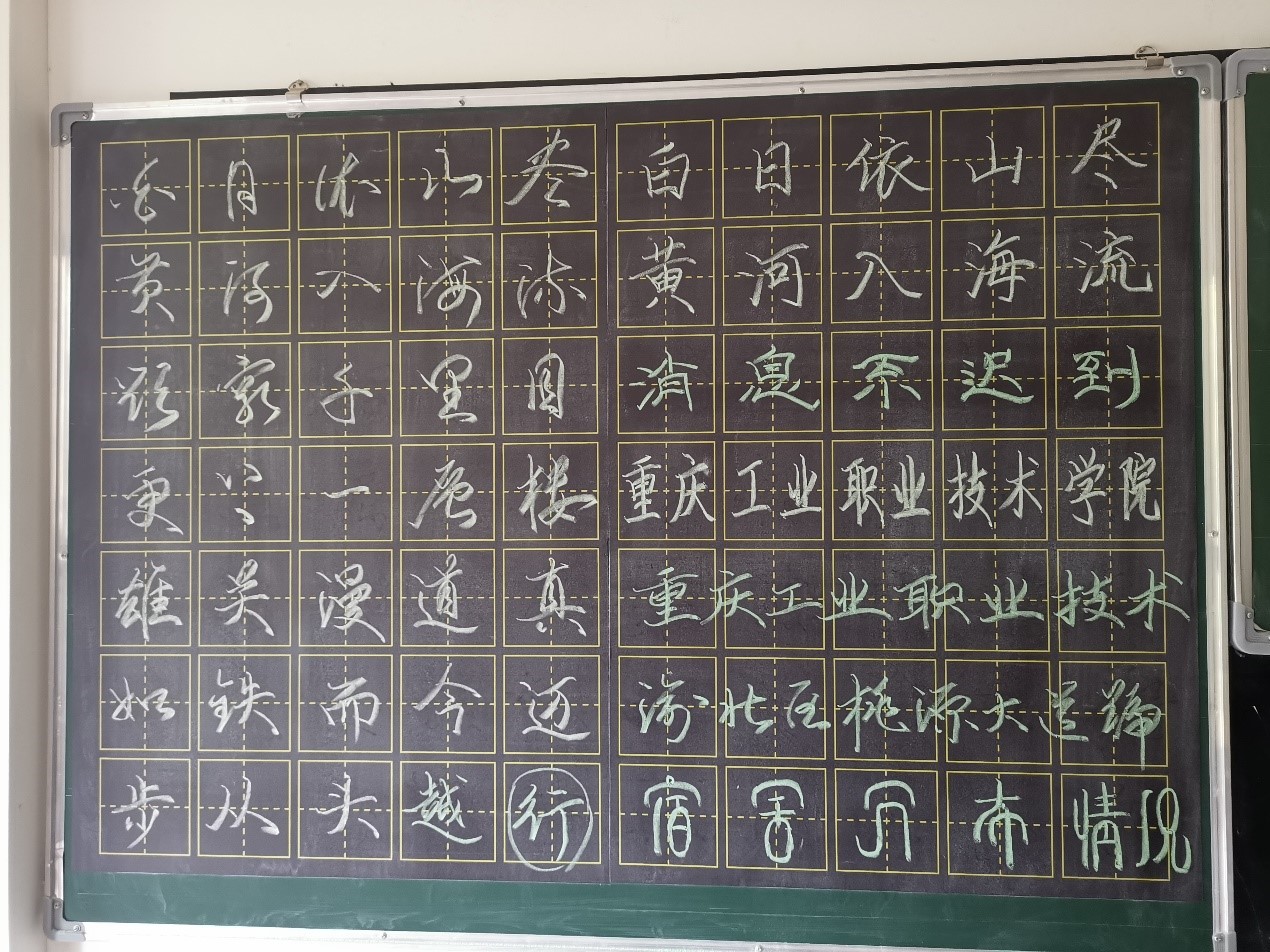 白日依山尽
黄河入海流
欲穷千里目
更上一层楼
雄关漫道真
如铁而今迈
步从头越行
白日依山尽
黄河入海流
消息不迟到
重庆工业职业技术学院
重庆工业职业技术
渝北区桃源大道
宿情况